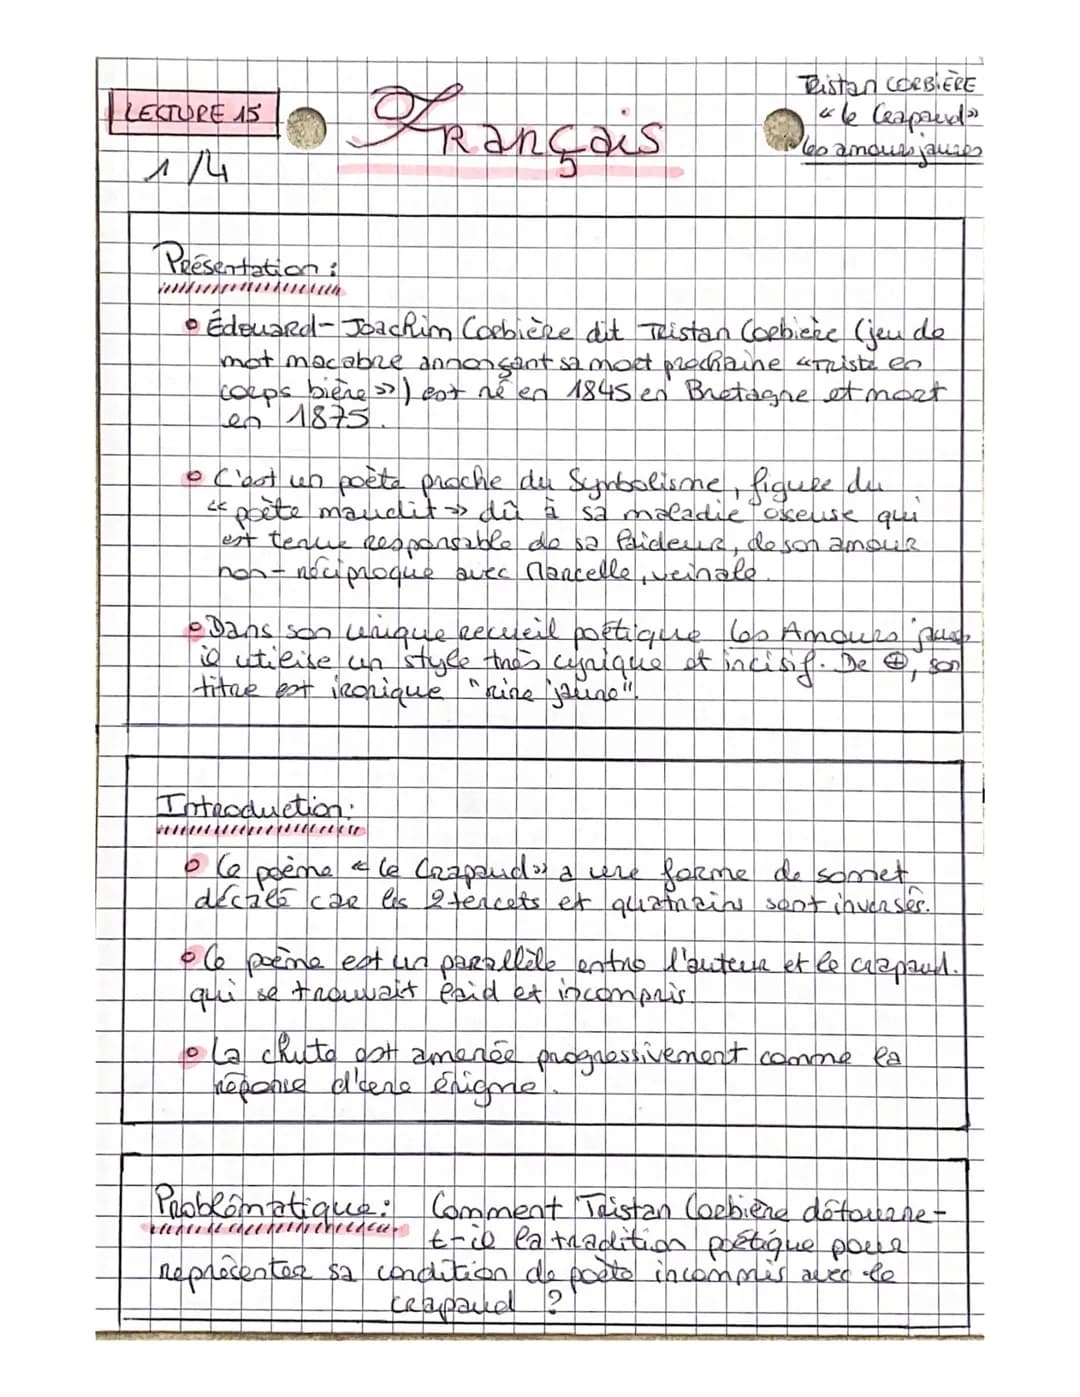 LECTURE 15
1/4
Français
Tristan CORBIÈRE
"le Crapaud"
les amours jaunes
Présentation :
• Édouard-Joachim Corbière dit Tristan Corbière (jeu de
mot macabre annonçant sa mort prochaine "Triste en
corps bière") est né en 1845 en Bretagne et mort
en 1875.
• C'est un poète proche du Symbolisme, figure du
"poète maudit" dû à sa maladie oseuse qui
est tenue responsable de sa laideur, de son amour
non-réciproque avec Marcelle, veinale.
• Dans son unique recueil poétique les Amours jaunes
il utilise un style très cynique et incisif. De ⊕, son
titre est ironique "rire jaune".
Introduction :
• Ce poème "le Crapaud" a une forme de sonnet
décalé car les 2 tercets et quatrains sont inversés.
• Ce poème est un parallèle entre l'auteur et le crapaud.
qui se trouvait laid et incompris.
• La chute est amenée progressivement comme la
réponse d'une énigme.
Problématique : Comment Tristan Corbière détourne-
t-il la tradition poétique pour
représenter sa condition de poète incompris avec le
crapaud ?